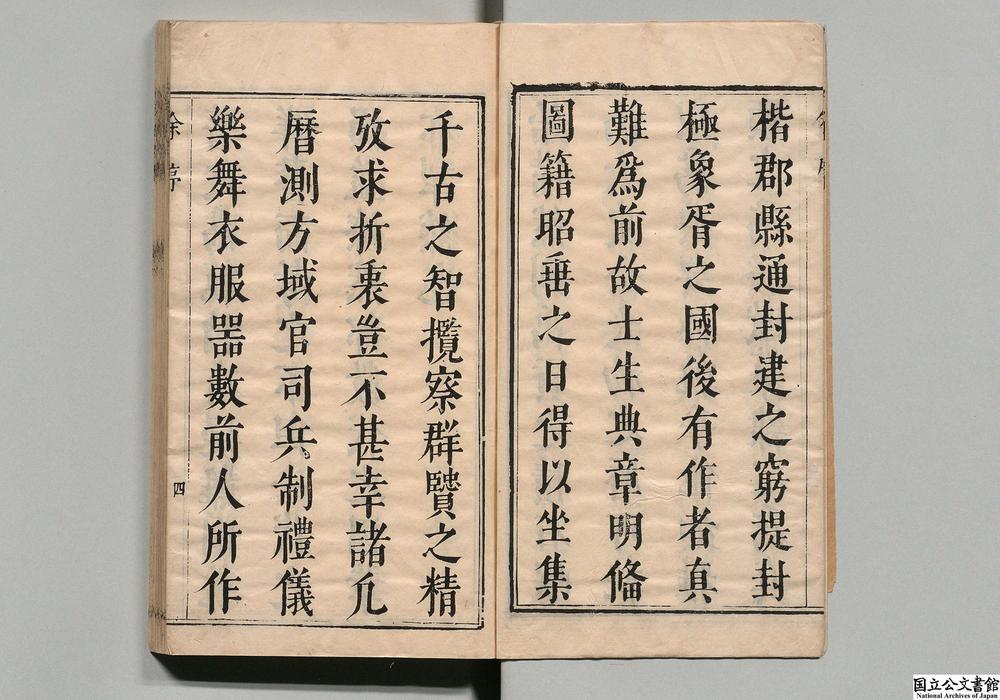 楷郡縣通封建之窮提封
極象胥之國後有作者真
難爲前故士生典章明偹
圖籍昭垂之日得以坐集
千古之智攬察群贒之精
攷求折衷豈不甚幸諸凢
曆測方域官司兵制禮儀
樂舞衣服噐數前人所作
四
国立公文書館
National Archives of Japan